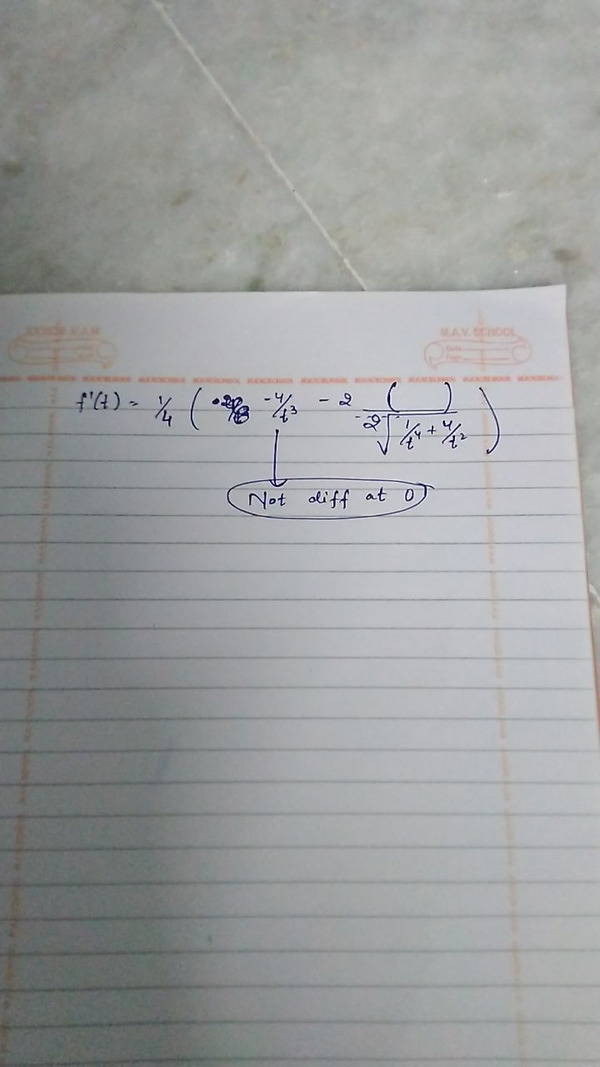 M.A.V. SCHOOL
Date
Page
f'(t) = 1/4 ( -4/t³ - 2 ( ) / 2√(1/t⁴ + 4/t²) )
Not diff at 0